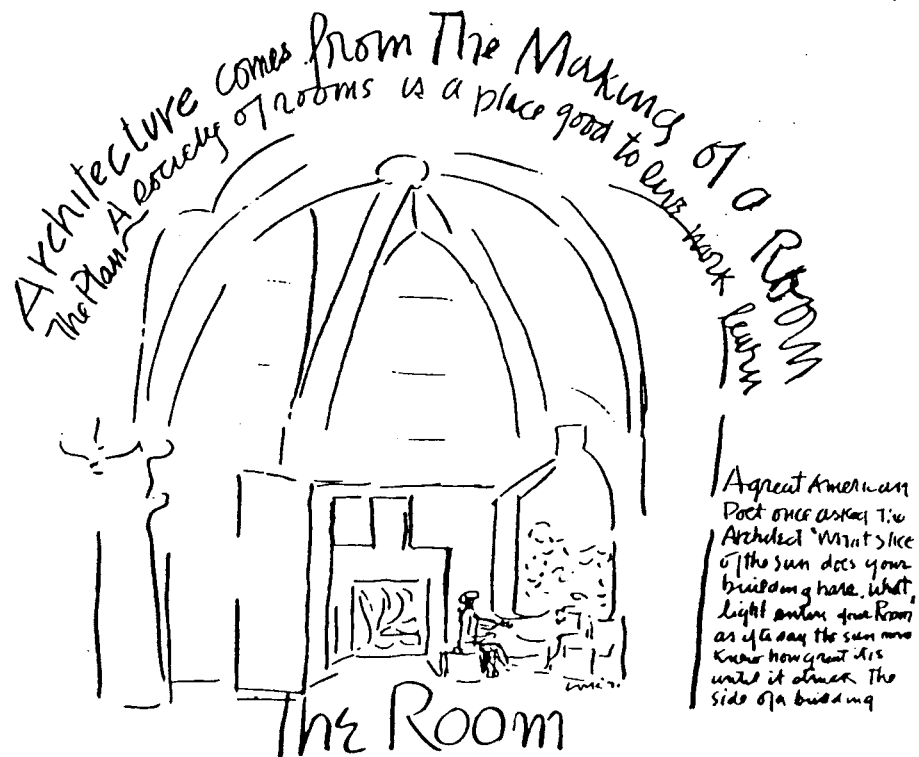 Architecture comes from The Making of a Room
The Plan A society of rooms is a place good to live work learn
A great American
Poet once asked the
Architect 'What slice
of the sun does your
building have. What
light enters your Room'
as if to say the sun never
knew how great it is
until it struck the
side of a building
The Room